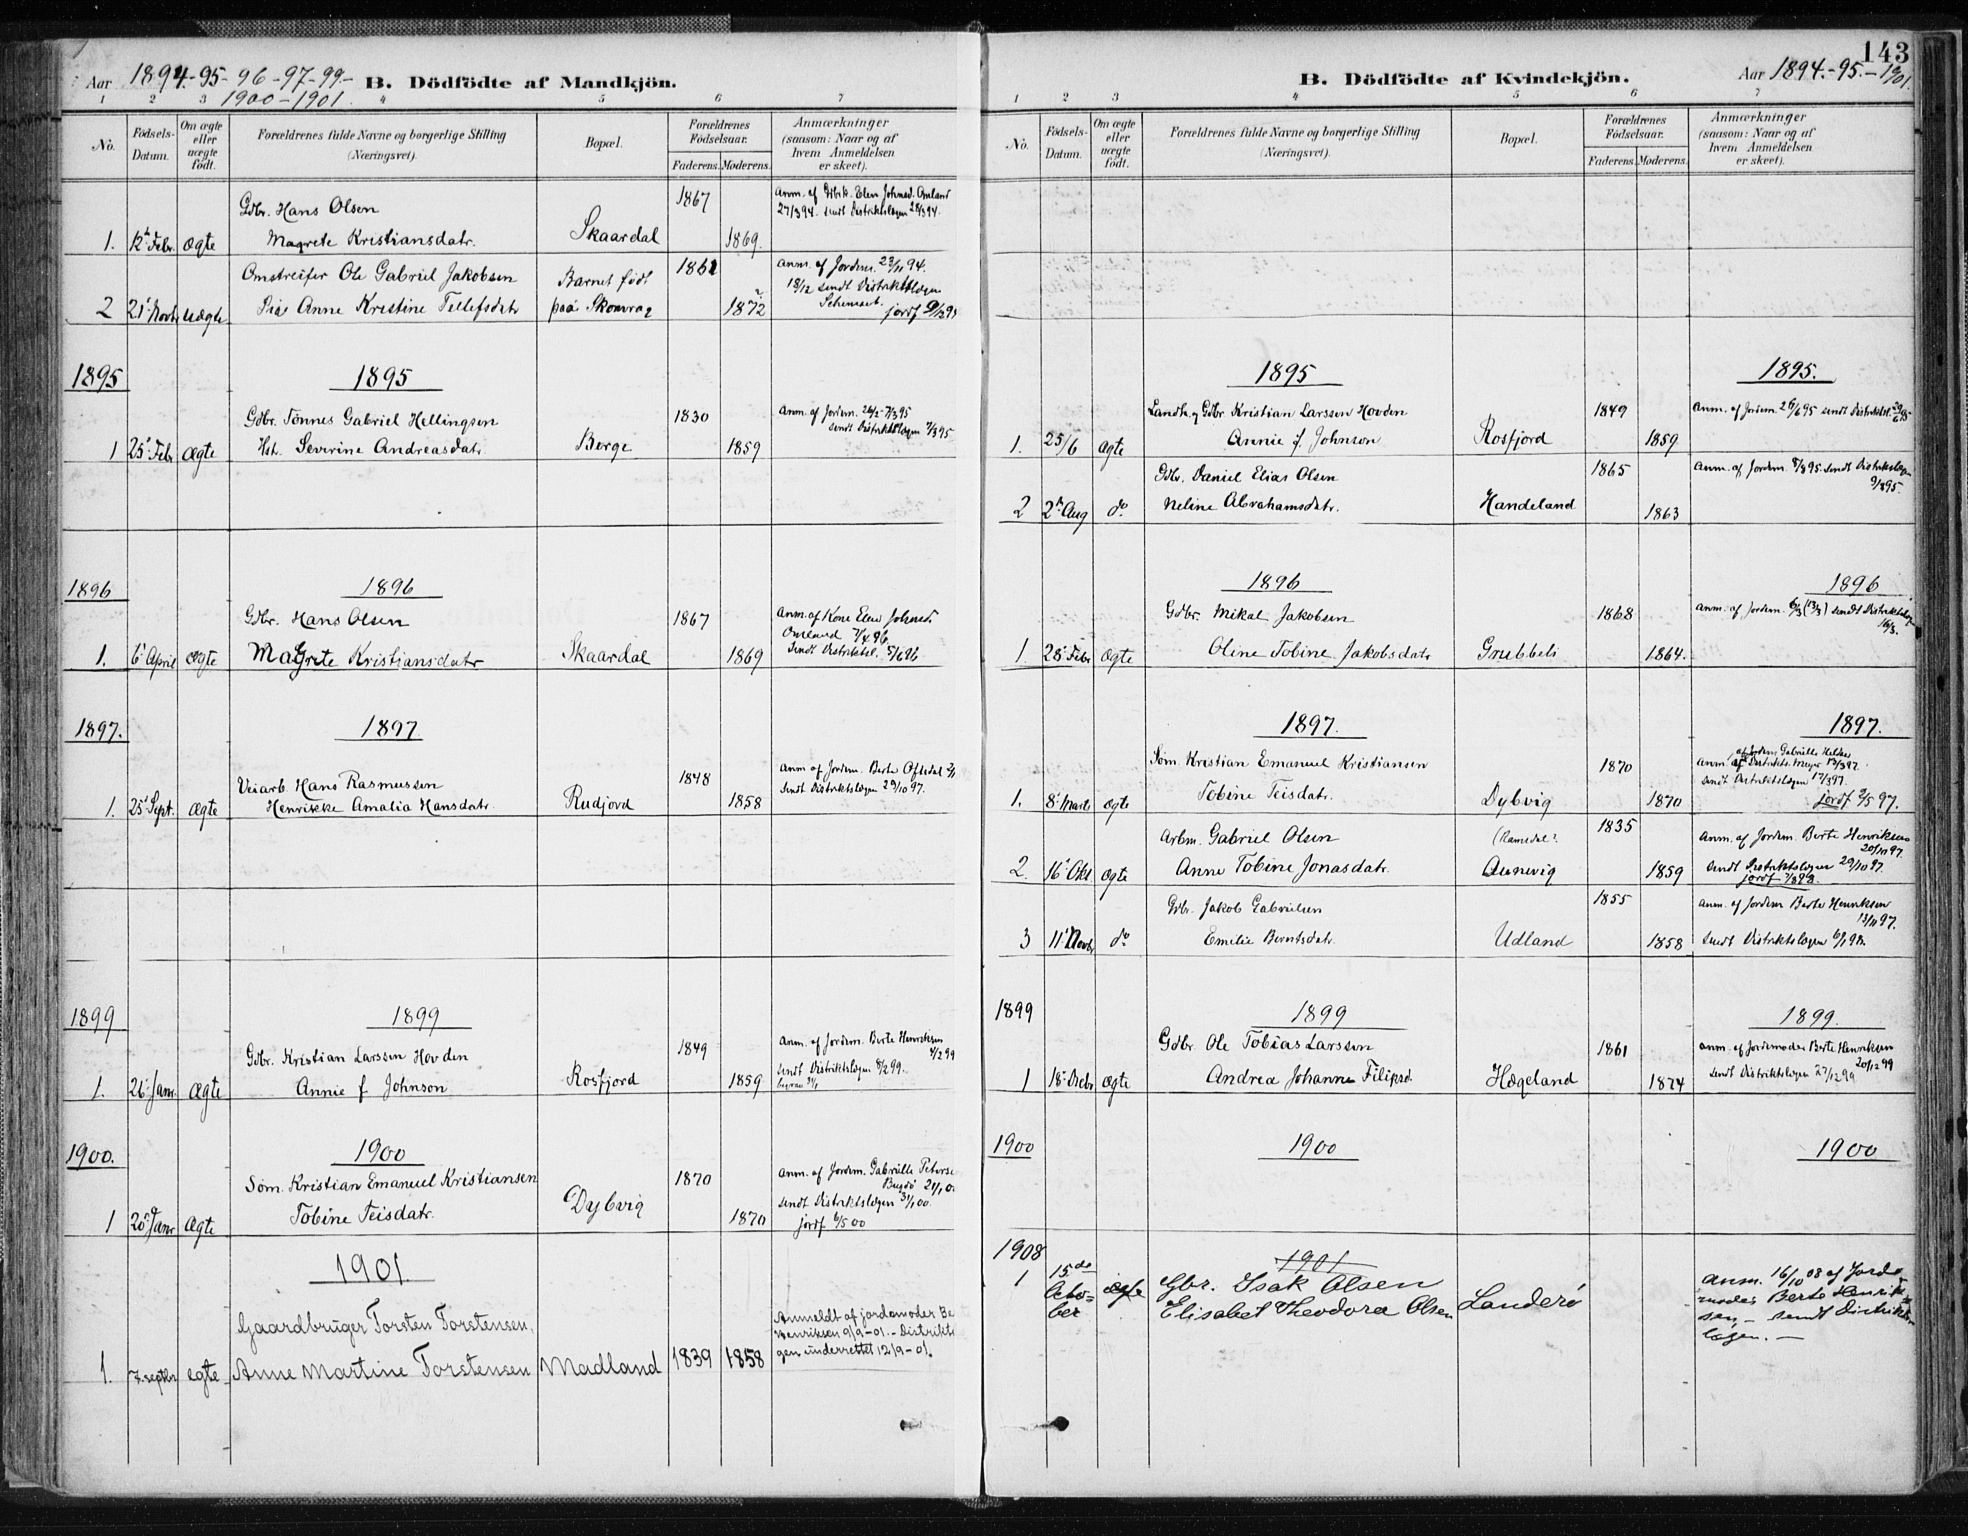 Aar 1894-95-96-97-99-
1900-1901.
B. Dödfödte af Mandkjön.
1 2 3 4 5 6 7
No.
Födsels-Datum.
Om ægte eller uægte födt.
Forældrenes fulde Navne og borgerlige Stilling (Næringsvei).
Bopæl.
Forældrenes Födselsaar.
Faderens. Moderens.
Anmærkninger (saasom: Naar og af hvem Anmeldelsen er skeet).
Gdbr. Hans Olsen 1867
1. 12 Febr. ægte Magrete Kristiansdatr. Skaardal 1869.
27/3 94. sendt Distriktslægen 28/3 94.
Omstreifer Ole Gabriel Jakobsen Barnet födt 1861 anm. af Jordem. 23/11 94.
2 21 Novbr uægte Pige Anne Kristine Tellefsdatr paa Skomrag 1872
18/12 sendt Distriktslægen
1895 1895
Gdbr. Tönnes Gabriel Hellingsen 1830 Anm. af Jordem. 26/2-7/3 95
1 25 Febr ægte Hst. Severine Andreasdatr. Berge 1859 sendt Distriktslægen 7/3 95
1896 1896
Gdbr. Hans Olsen 1867 Anm. af Kone Elen Johnsd.
Omland 7/4 96
1. 6 April ægte Magrete Kristiansdatr Skaardal 1869 Sendt Distriktsl.
1897. 1897
Veiarb. Hans Rasmussen 1848 Anm af Jordem. Berte Ofsdal
1. 25 Sept. ægte Henrikke Amalia Hansdatr. Rudjord 1858 Sendt Distriktslægen 29/10 97.
1899 1899
Gdbr. Kristian Larssen Hovden 1849 Anm. af Jordem. Berte Henriksen
4/2 99
1. 26 Jan. ægte Annie f Johnson Rosfjord 1859 sendt Distriktslægen 8/2 99.
1900. 1900
Söm. Kristian Emanuel Kristiansen 1870 Anm. af Jordem. Gabrielle Peters
1 20 Janr ægte Tobine Teisdatr. Dybvig 1870 sendt Distriktslægen 31/1 00.
jordf 6/5 00
1901.
Gaardbruger Torsten Torstensen,
1. 7. septbr ægte Anne Martine Torstensen Madland 1839 1858
Anmeldt af jordemoder Be
Henriksen 9/9-01. - Distrikts
gen underrettet 12/9-01.
143
B. Dödfödte af Kvindekjön.
Aar 1894.-95.-1901.
1 2 3 4 5 6 7
No.
Födsels-Datum.
Om ægte eller uægte födt.
Forældrenes fulde Navne og borgerlige Stilling (Næringsvei).
Bopæl.
Forældrenes Födselsaar.
Faderens. Moderens.
Anmærkninger (saasom: Naar og af hvem Anmeldelsen er skeet).
1895 1895.
Landh. og Gdbr Kristian Larssen Hovden 1849 Anm. af Jordem. 26/6 95 sendt Distriktsl. 29/6 95
1. 25/6 ægte Annie f. Johnson Rosfjord 1859
Gdbr. Daniel Elias Olsen 1865 Anm. af Jordem. 8/8 95 sendt Distriktslægen 9/8 95.
2 2 Aug do. Neline Abrahamsdatr. Handeland 1863
1896 1896
Gdbr. Mikal Jakobsen 1868
1. 28 Febr ægte Oline Tobine Jakobsdatr Grubbeli 1864.
1897. 1897.
Söm. Kristian Emanuel Kristiansen 1870
sendt Distriktslægen 17/3 97.
1. 8 Marts ægte Tobine Teisdatr. Dybvig 1870 jordf 2/5 97.
Arbm. Gabriel Olsen (Ramsdal? 1835 Anm. af Jordem. Berte Henriksen
20/10 97.
2. 16 Okt. ægte Anne Tobine Jonasdatr. Aunevig 1859 sendt Distriktslægen 29/10 97.
Gdbr. Jakob Gabrielsen 1855 anm. af Jordem Berte Henriksen
13/11 97.
3 11 Novbr do. Emilie Berntsdatr. Udland 1858 sendt Distriktslægen
1899 1899 1899.
Gdbr. Ole Tobias Larssen 1861 anm. af Jordemoder Berte Henriksen
20/12 99
1 18 Decbr. ægte Andrea Johanne Filipsd. Hægeland 1874 sendt Distriktslægen 27/12 99
1900 1900 1900
1908 1901
1 15de October ægte Gbr. Isak Olsen
Elisabet Theodora Olsen Landerö
Anm. 16/10 08 af Jorde
moder Berte Henrik
sen, - sendt Distrikts
lægen. -